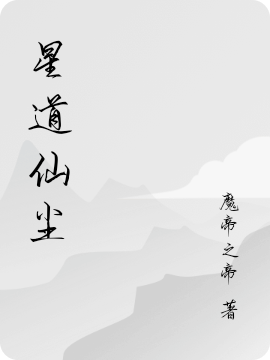 星道仙尘
魔帝之帝 著